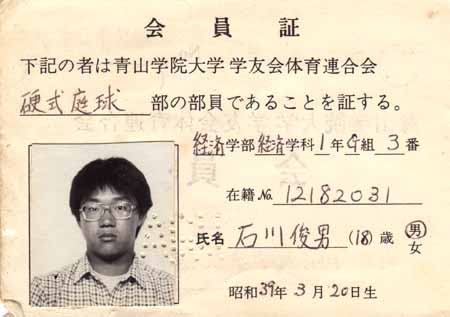 会員証
下記の者は青山学院大学 学友会体育連合会
硬式庭球 部の部員であることを証する。
経済学部経済学科1年G組3番
在籍No. 12182031
氏名 石川俊男 (18)歳 男
女
昭和39年3月20日生